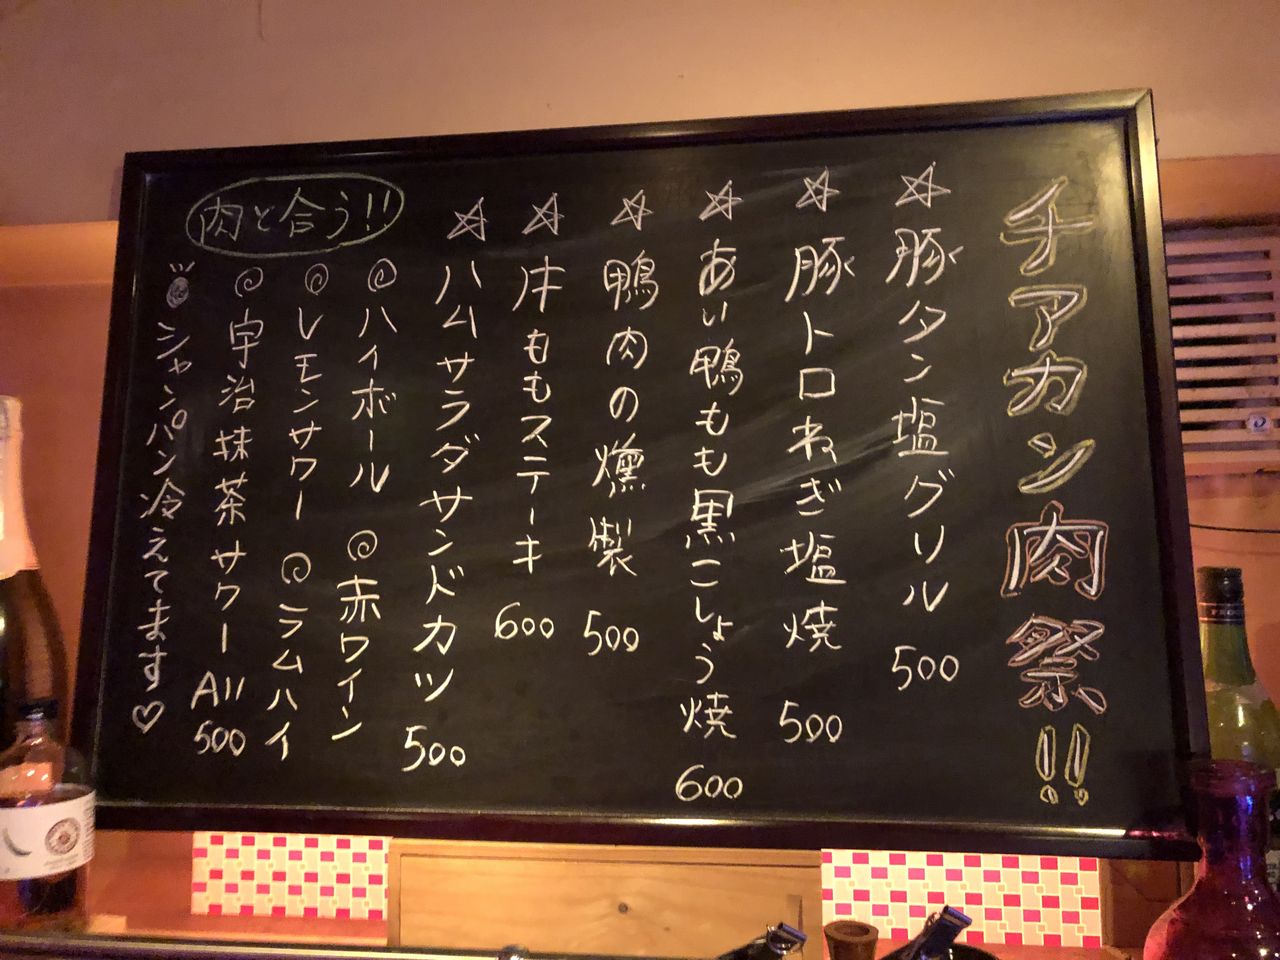 チアカン肉祭!!
☆豚タン塩グリル 500
☆豚トロねぎ塩焼 500
☆あい鴨もも黒こしょう焼 600
☆鴨肉の燻製 500
☆牛ももステーキ 600
☆ハムサラダサンドカツ 500
肉と合う!!
ハイボール 赤ワイン
レモンサワー ラムハイ
宇治抹茶サワー All 500
シャンパン冷えてます♡